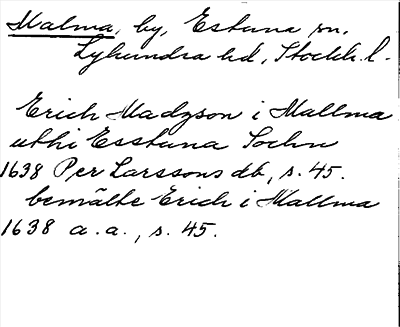 Malma, by, Estuna sn.
Lyhundra hd, Stockh. l.
Erich Madzson i Mallma
uthi Esstuna Sochn
1638 Per Larssons db, s. 45.
bemälte Erich i Mallma
1638 a. a., s. 45.